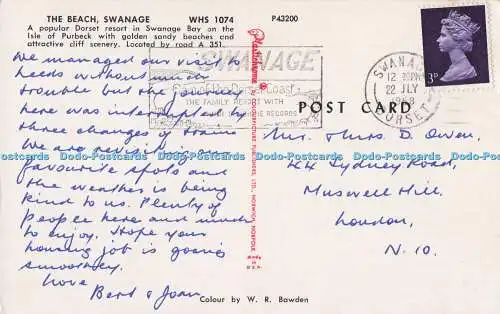 THE BEACH, SWANAGE WHS 1074
A popular Dorset resort in Swanage Bay on the
Isle of Purbeck with golden sandy beaches and
attractive cliff scenery. Located by road A 351.
P43200
We managed our visit to
Leeds without much
trouble but the journey
here was interrupted by
three changes of trains
We are revisiting our
favourite spots and
the weather is being
kind to us. Plenty of
people here and much
to enjoy. Hope your
housing job is going
smoothly.
Love
Bert & Joan
SWANAGE
THE FAMILY RESORT WITH
SUNSHINE RECORDS
Plastichrome
POST CARD
SWANAGE
12 PM
22 JLY
1968
DORSET
3D
Mr. & Mrs D. Owen,
44 Sydney Road,
Muswell Hill,
London,
N. 10.
Colour by W. R. Bawden
D-Postcards D-Postcards D-Postcards D-Postcards D-Postcards